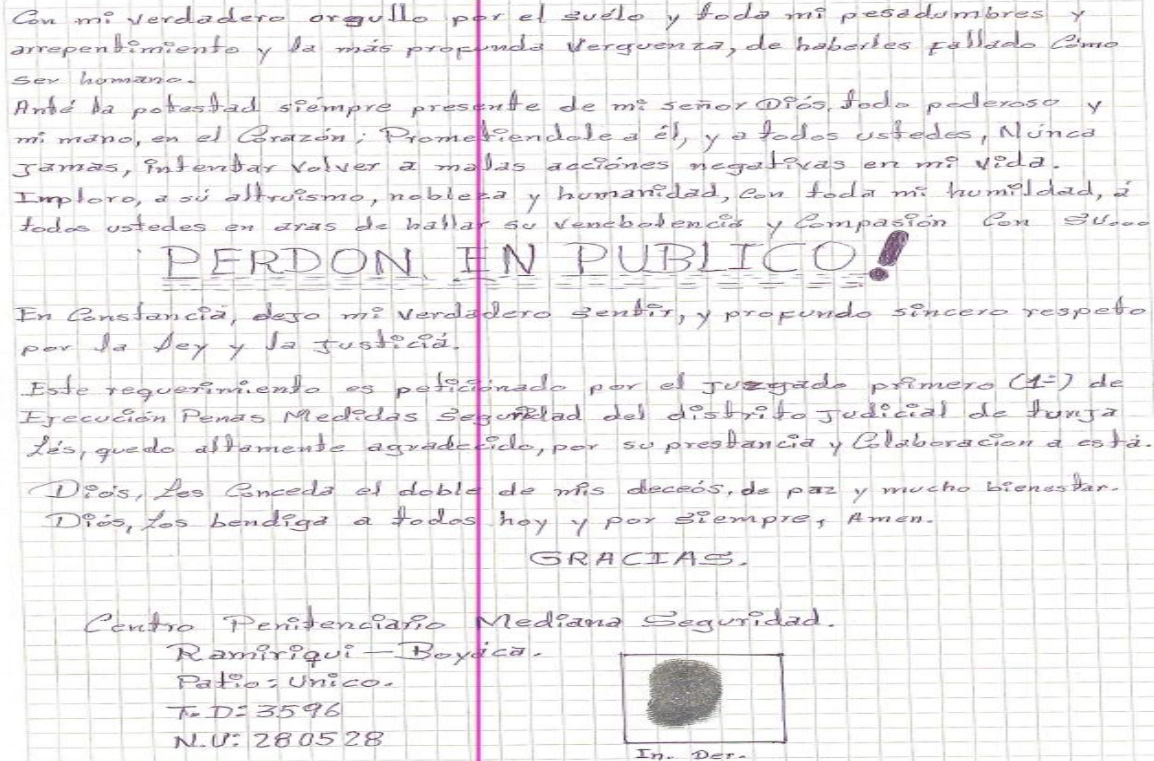 Con mi verdadero orgullo por el suelo y toda mi pesadumbres y
arrepentimiento y la más profunda verguenza, de haberles fallado cómo
ser humano.
Anté la potestad siémpre presente de mi señor Diós, todo poderoso y
mi mano, en el Corazón; Prometiendole a él, y a todos ustedes, Núnca
Jamas, intentar volver a malas acciónes negativas en mi vida.
Imploro, a sú altruismo, nobleza y humanidad, con toda mi humildad, á
todos ustedes en aras de hallar su venebolencia y Compasión Con su....
PERDON EN PUBLICO!
En Constancia, dejo mi verdadero sentir, y profundo sincero respeto
por la Ley y la Justiciá.
Este requerimiento es peticionado por el Juzgado primero (1=) de
Ejecución Penas Medidas Seguridad del distrito Judicial de tunja
Lés, quedo altamente agradecido, por su prestancia y Colaboracion a está.
Diós, Les Conceda el doble de mis deceós, de paz y mucho bienestar.
Diós, Los bendiga a todos hoy y por siempre, Amen.
GRACIAS.
Centro Penitenciario Mediana Seguridad.
Ramiriqui - Boyáca.
Patio: Unico.
T.D: 3596
N.U: 280528
In. Der.